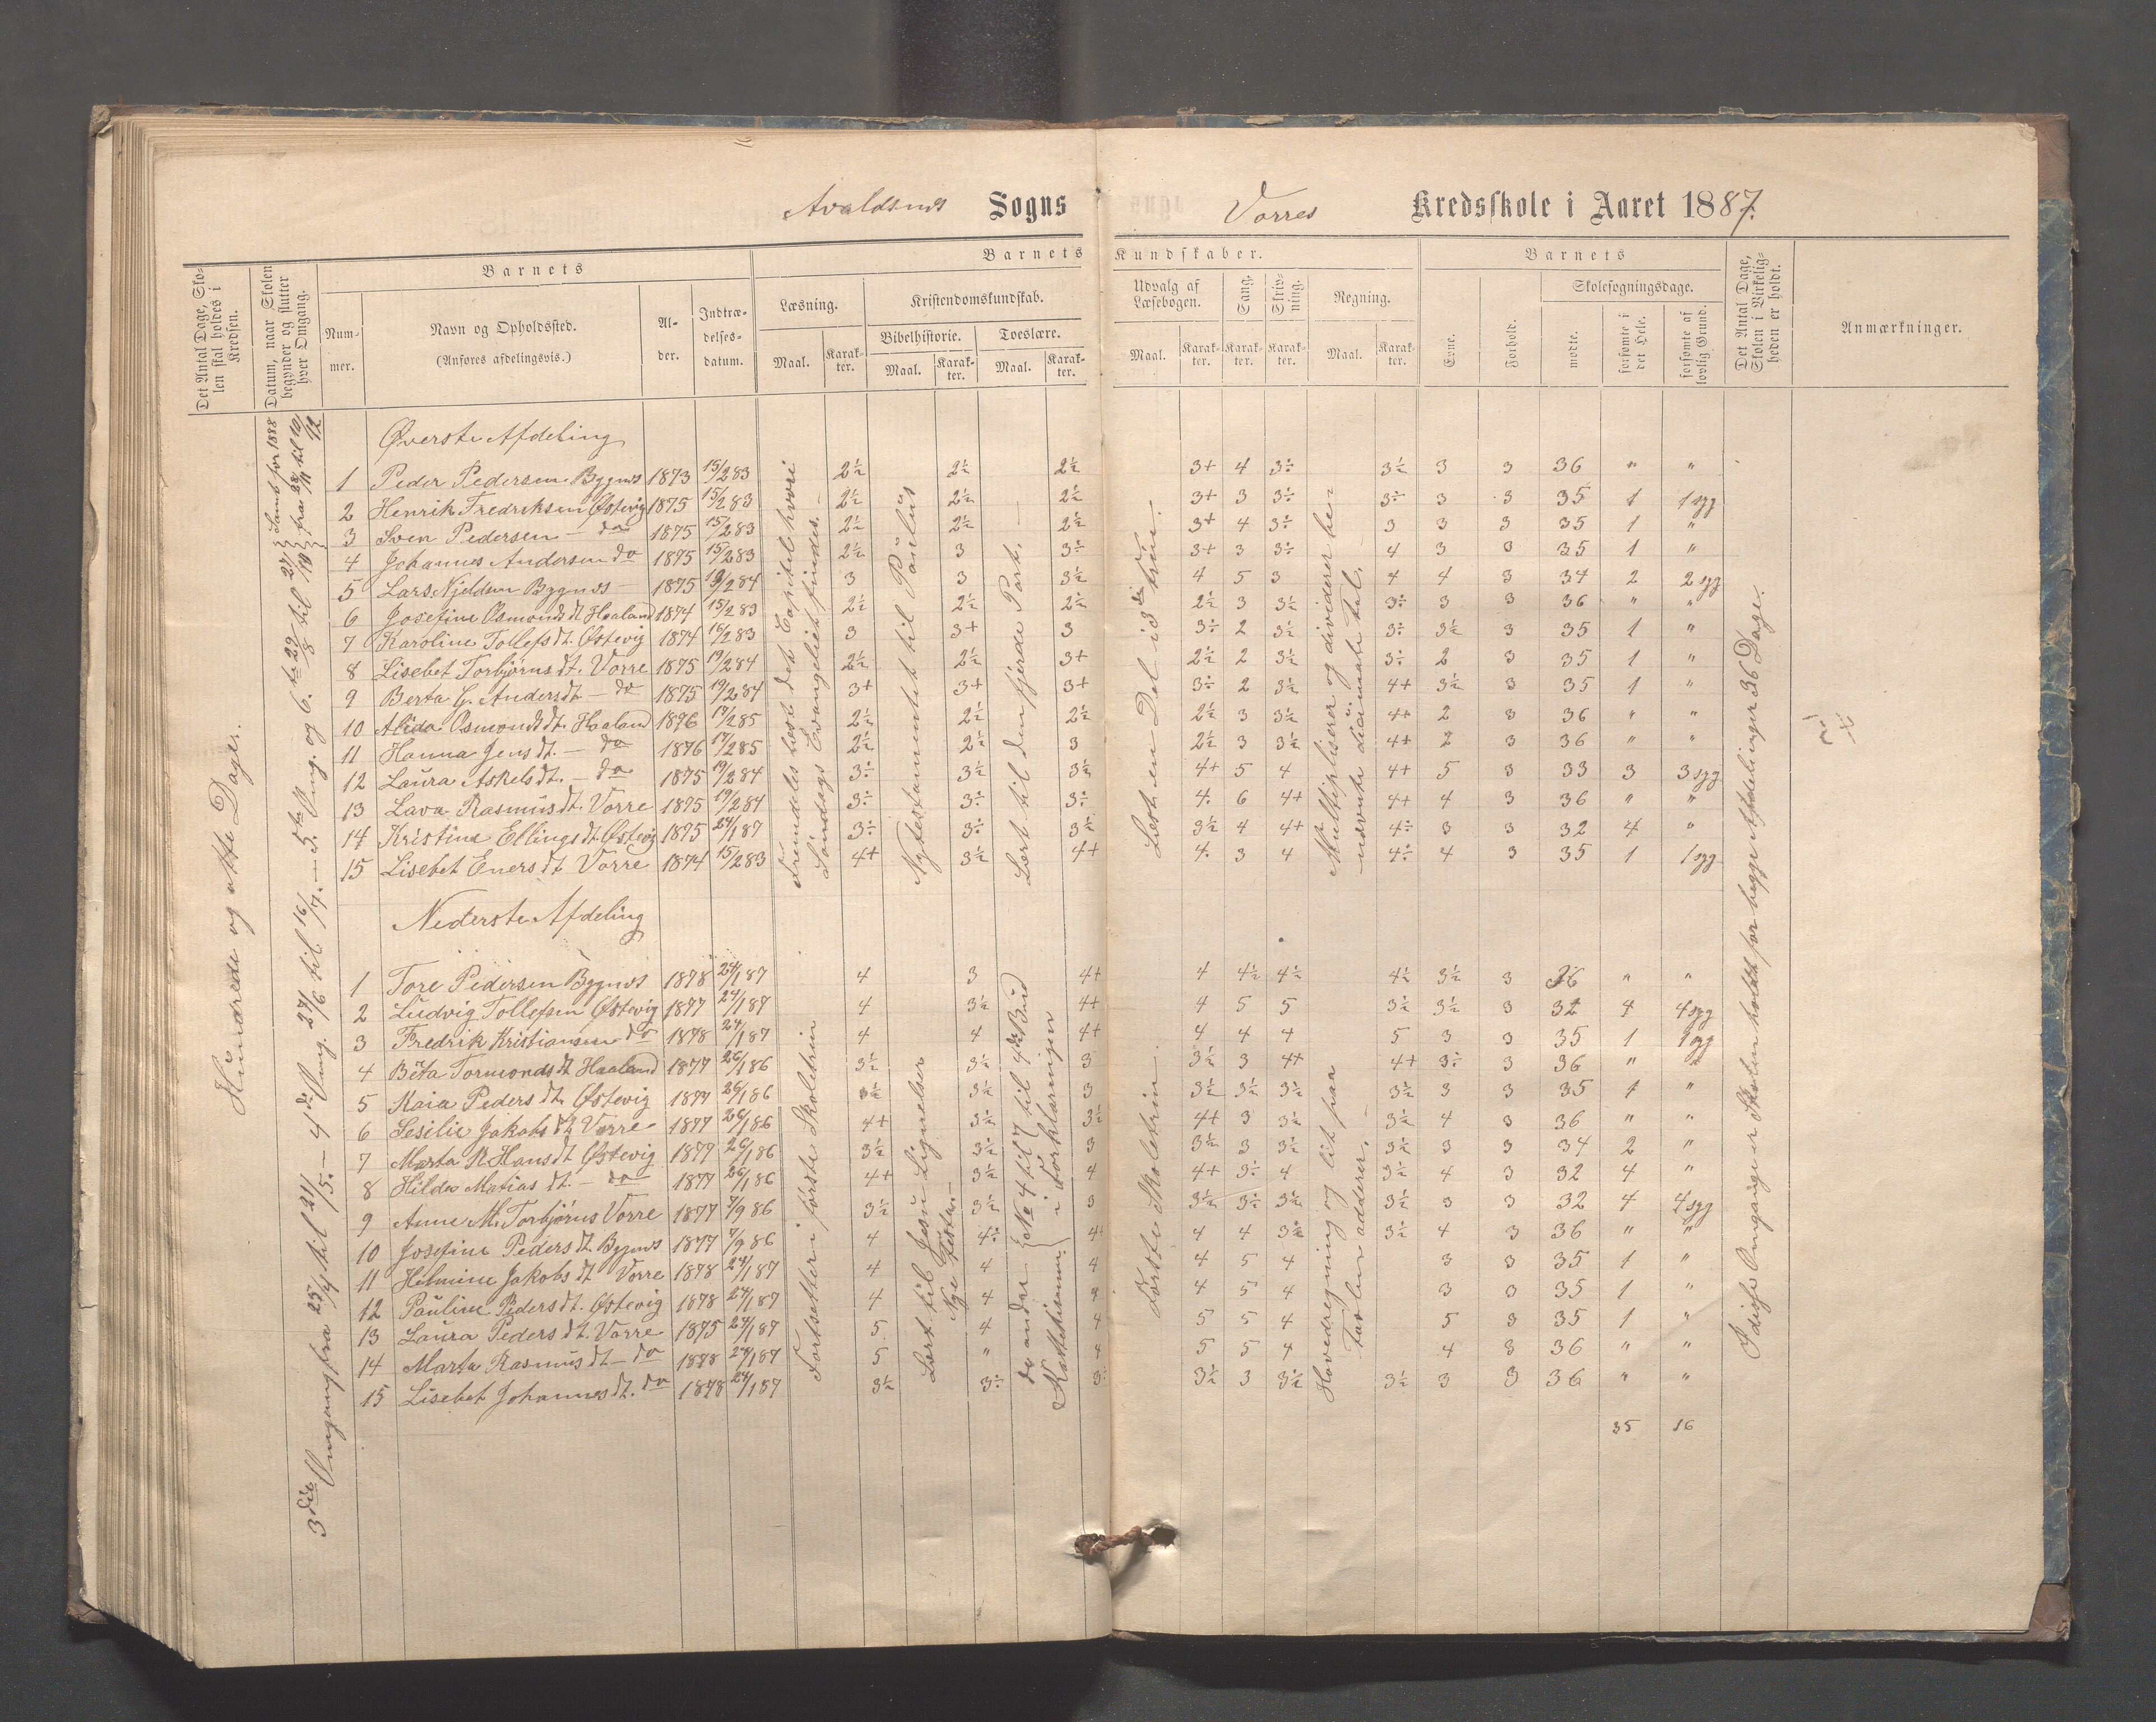 Avaldsnes Sogns
Vorres Kredsskole i Aaret 1887.
Det Antal Dage, Skolen skal holdes i Kredsen.
Datum, naar Skolen begynder og slutter hver Omgang.
Barnets
Nummer.
Navn og Opholdssted.
(Anføres afdelingsvis.)
Alder.
Indtrædelsesdatum.
Barnets Kundskaber.
Læsning.
Maal. Karakter.
Kristendomskundskab.
Bibelhistorie.
Maal. Karakter.
Troeslære.
Maal. Karakter.
Udvalg af Læsebogen.
Maal. Karakter.
Sang.
Karakter.
Skrivning.
Karakter.
Regning.
Maal. Karakter.
Barnets
Evne.
Forhold.
Skolesøgningsdage.
mødte.
forsømte i det Hele.
forsømte af lovlig Grund.
Det Antal Dage, Skolen i Virkeligheden er holdt.
Anmærkninger.
Hundrede og otte Dage.
3die Omgang fra 25/4 til 21/5. – 4de Omg. 27/6 til 16/7. – 5te Omg. og 6.te
Øverste Afdeling
1 Peder Pedersen Bygnes 1873 15/2 83 2½ 2½ 2½ 3+ 4 3÷ 3½ 3 3 36 " "
2 Henrik Fredriksen Østevig 1875 15/2 83 2½ 2½ 2½ 3+ 3 3÷ 3÷ 3 3 35 1 1 syg
3 Sven Pedersen – do 1875 15/2 83 2½ 2½ 2½ 3+ 4 3÷ 3 3 3 35 1 "
4 Johannes Andersen do 1875 15/2 83 2½ 3 3÷ 3+ 3 3÷ 4 3 3 35 1 "
5 Lars Njeldsen Bygnes – 1875 19/2 84 3 3 3½ 4 5 3 4 4 3 34 2 2 syg
6 Josefine Osmonds dt Haaland 1874 15/2 83 2½ 2½ 2½ 2½ 3 3½ 3÷ 3 3 36 " "
7 Karoline Tollefs dt. Østevig 1874 16/2 83 3 3+ 3 3÷ 2 3½ 3÷ 3½ 3 35 1 "
8 Lisebet Torbjørns dt. Vorre 1875 19/2 84 2½ 2½ 3+ 2½ 2 3½ 3÷ 2 3 35 1 "
9 Berta G. Anders dt – do 1875 19/2 84 3+ 3+ 3+ 3÷ 2 3½ 4+ 3½ 3 35 1 "
10 Alida Osmonds dt. Haaland 1876 17/2 85 2½ 2½ 2½ 2½ 3 3½ 4+ 2 3 36 " "
11 Hanna Jens dt. – do 1876 17/2 85 2½ 2½ 3 2½ 3 3½ 4+ 2 3 36 " "
12 Laura Askels dt. – do 1875 19/2 84 3÷ 3½ 3½ 4+ 5 4 4+ 5 3 33 3 3 syg
13 Lava Rasmus dt. Vorre 1875 19/2 84 3÷ 3÷ 3÷ 4. 6 4+ 4+ 4 3 36 " "
14 Kristina Ellings dt. Østevig 1875 24/1 87 3÷ 3÷ 3÷ 3½ 4 4+ 4÷ 3 3 32 4 "
15 Lisebet Eners dt Vorre 1874 15/2 83 4+ 3½ 4+ 4. 3 4 4÷ 4 3 35 1 1 syg
Fremdeles læst det Capitel hvori Søndags Evangeliet findes. –
Nytestamentet til Paulus
Lært til den fjerde Part. –
Læst en Del i 3die Trin.
Multipliserer og dividerer hen
Nederste Afdeling
1 Tore Pedersen Bygnes 1878 24/1 87 4 3 4+ 4 4½ 4½ 4½ 3½ 3 36 " "
2 Ludvig Tollefsen Østevig 1877 24/1 87 4 3½ 4+ 4 5 5 3½ 3½ 3 32 4 4 syg
3 Fredrik Kristiansen do 1878 24/1 87 4 4 4+ 4 4 4 5 3 3 35 1 1 syg
4 Beta Tormonds dt Haaland 1877 26/1 86 3½ 3½ 3 3½ 3 4+ 4+ 3÷ 3 36 " "
5 Kaia Peders dt. Østevig 1877 26/1 86 3½ 3½ 3 3½ 3½ 3½ 3½ 3 3 35 1 "
6 Sesilie Jakobs dt Vorre 1877 26/1 86 4+ 3½ 3½ 4+ 3 3½ 3½ 4 3 36 " "
7 Marta R. Hans dt Østevig 1877 26/1 86 3½ 3½ 3 3½ 3 3½ 3½ 3 3 34 2 "
8 Hilda Matias dt. – do 1877 26/1 86 4+ 3½ 4 4+ 3÷ 4 3½ 4 3 32 4 "
9 Anne M. Torbjørns Vorre 1877 7/9 86 3½ 3½ 3 3½ 3÷ 3½ 3½ 3 3 32 4 4 syg
10 Josefine Peders dt Bygnes 1877 7/9 86 4 4÷ 4+ 4 4 3½ 3½ 4 3 36 " "
11 Helmine Jakobs dt Vorre 1878 24/1 87 4 4 4 4 5 4 3 3 35 1 "
12 Pauline Peders dt. Østevig 1878 24/1 87 4 4 4 4 5 4 3 3 35 1 "
13 Laura Peders dt. Vorre 1875 24/1 87 5 4 4 5 5 4 5 3 35 1 "
14 Marta Rasmus dt – do 1878 24/1 87 5 " 4 5 5 4 4 3 36 " "
15 Lisebet Johannes dt. do 1878 24/1 87 3½ 3÷ 3÷ 3½ 3 3½ 3½ 3 3 36 " "
35 16
Fortsetter i første Skoletrin
Lært til Jesu Lignelser Nye testam. –
Første Skoletrin.
Hovedregning og lit paa Tavlen adderer. –
I disse Omgange er Skolen holdt for begge Afdelinger 36 Dage.